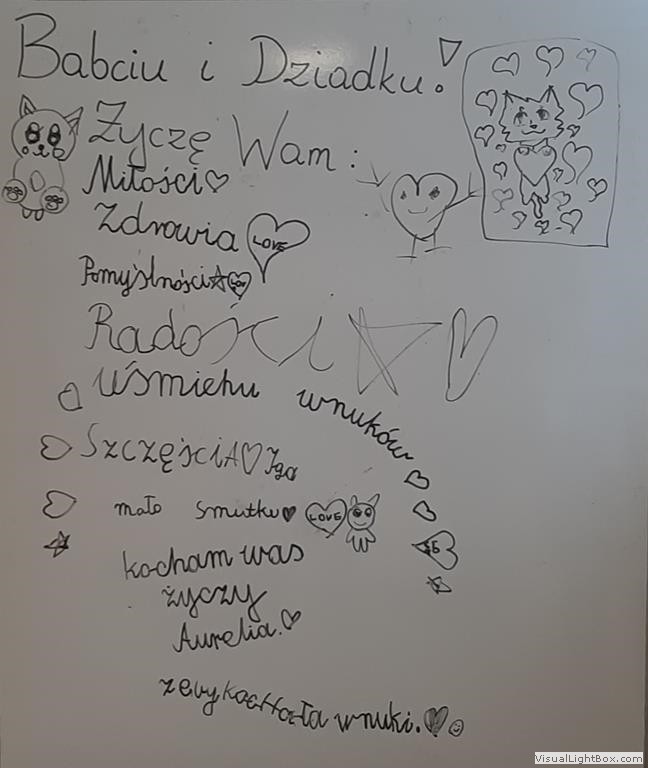 Babciu i Dziadku!
Życzę Wam:
Miłości
Zdrowia LOVE
Pomyślności LOV
Radości
Uśmiehu wnuków
SzczęściA Iga
mało smutku LOVE
kocham was
życzy
Aurelia.
wnuki.
VisualLightBox.com